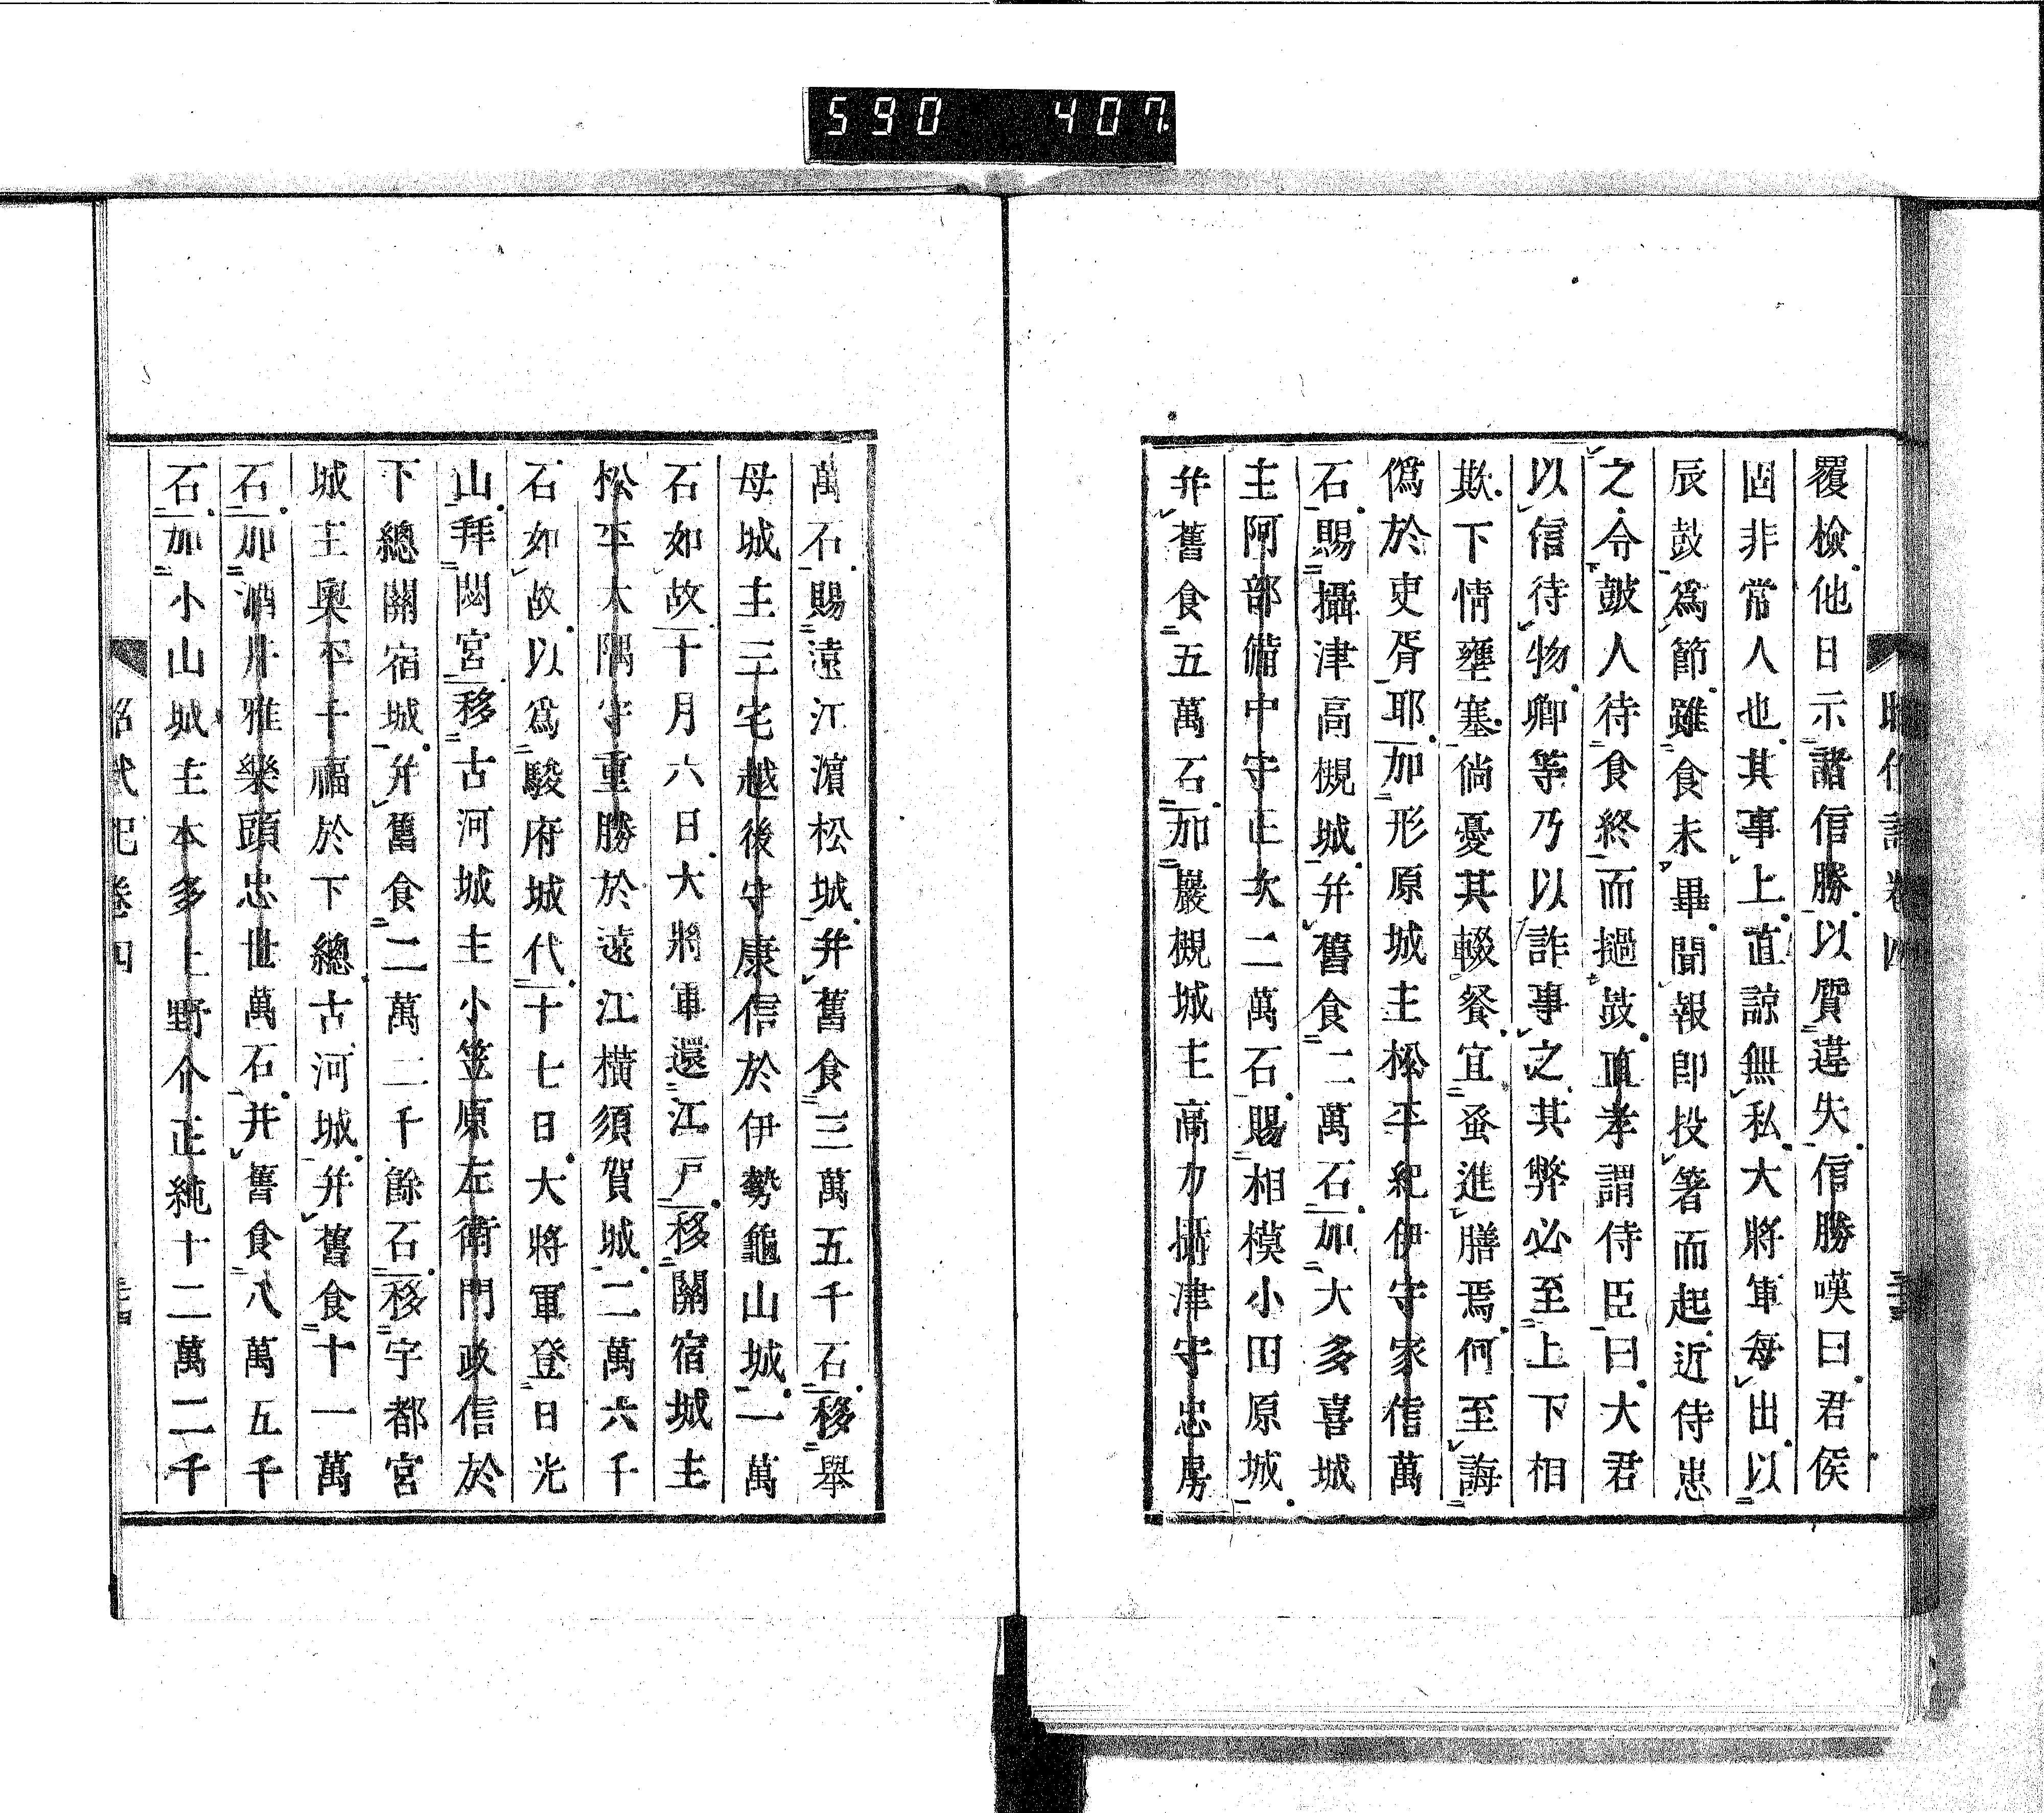 590 407
覆檢他日示諸信勝以質違失信勝嘆曰君侯
固非常人也其事上直諒無私大將軍每出以
辰鼓爲節雖食未畢聞報卽投箸而起近侍患
之令皷人待食終而撾鼓直孝謂侍臣曰大君
以信待物卿等乃以詐事之其弊必至上下相
欺下情壅塞倘憂其輟餐宜蚤進膳焉何至誨
僞於吏胥耶加形原城主松平紀伊守家信萬
石賜攝津高槻城幷舊食二萬石加大多喜城
主阿部備中守正次二萬石賜相模小田原城
幷舊食五萬石加巖槻城主高力攝津守忠房
萬石賜遠江濵松城幷舊食三萬五千石移擧
母城主三宅越後守康信於伊勢龜山城一萬
石如故十月六日大將軍還江戸移關宿城主
松平大隅守重勝於遠江橫須賀城二萬六千
石如故以爲駿府城代十七日大將軍登日光
山拜閟宮移古河城主小笠原左衛門政信於
下總關宿城幷舊食二萬二千餘石移宇都宮
城主奧平千福於下總古河城幷舊食十一萬
石加酒井雅樂頭忠世萬石幷舊食八萬五千
石加小山城主本多上野介正純十二萬二千
卷四